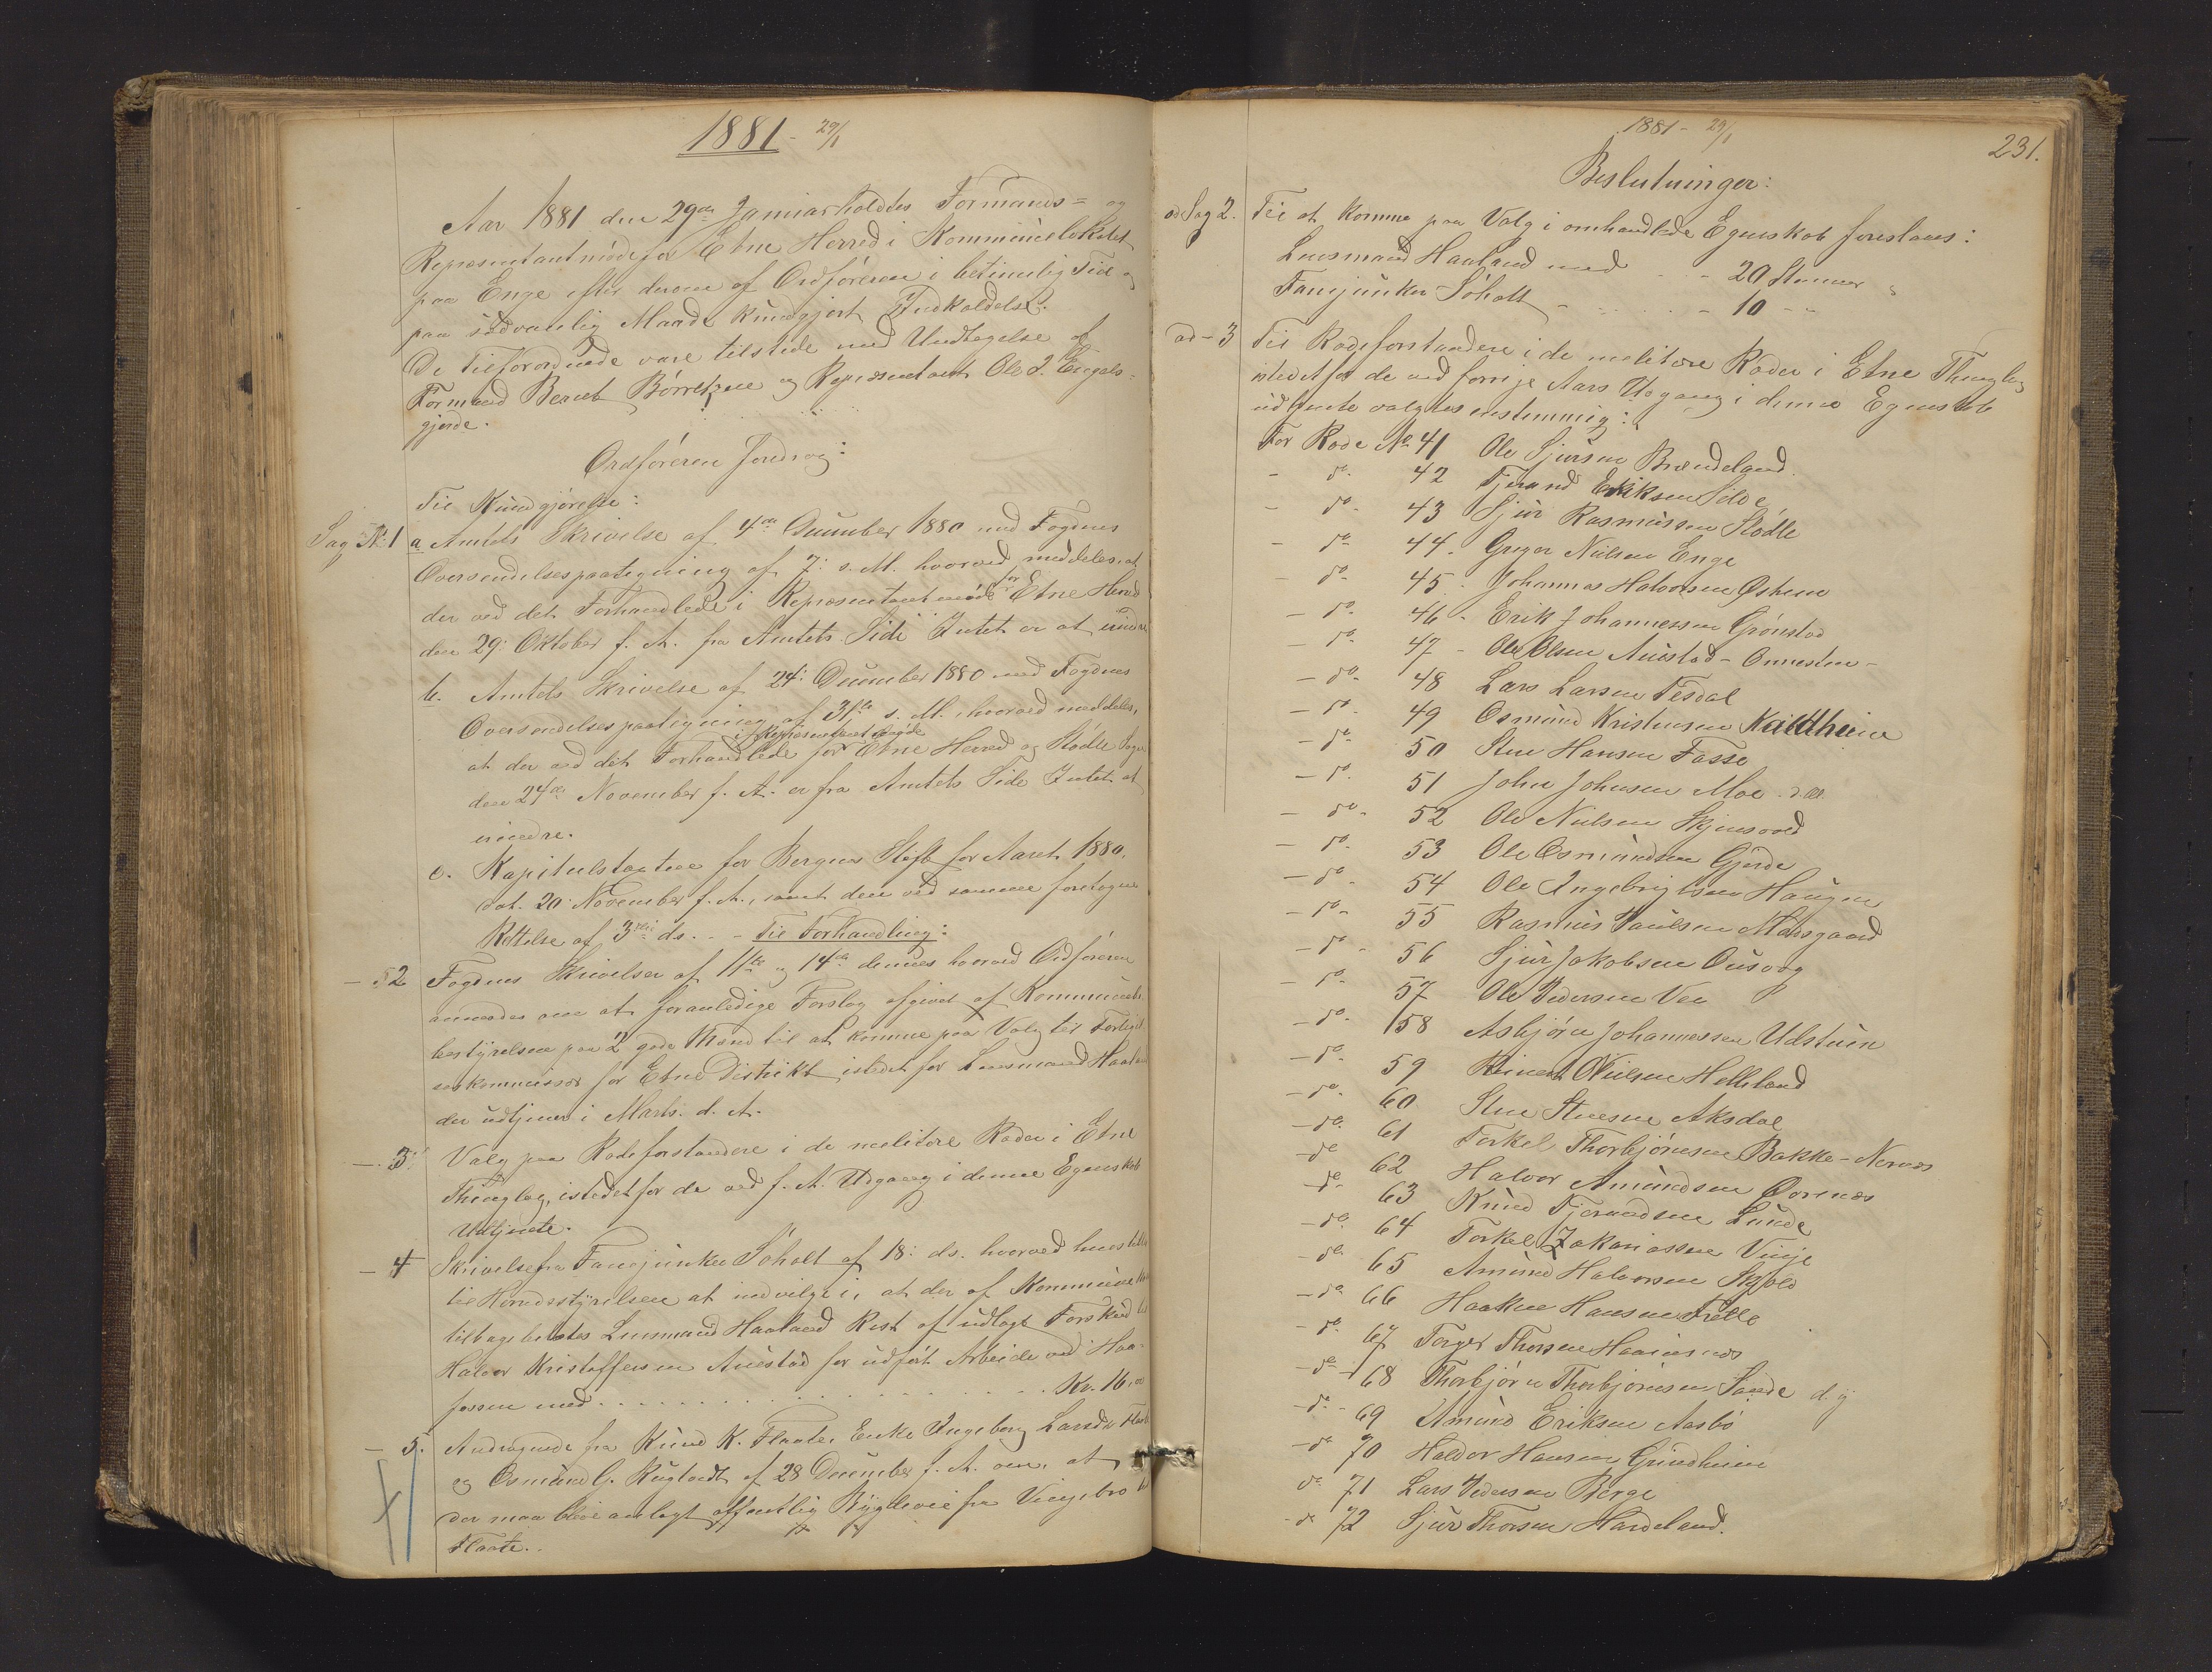 1881 - 29/1
Aar 1881 den 29de Januar holdtes Formands= og
Repræsentantmøde for Etne Herred i Kommunelokalet
paa Enge efter derom af Ordføreren i betimelig Tid og
paa sædvanlig Maade kundgjort Indkaldelse.
De Tilforordnede vare tilstede med Undtagelse af
Formand Berent Børretzen og Repræsentant Ole I. Engels=
gjerde.
Ordføreren foredrog:
Til Kundgjørelse:
Sag No 1 a Amtets Skrivelse af 4de December 1880 med Fogdens
Oversendelsespaategning af 7. s. M. hvorved meddeles, at
der ved det Forhandlede i Repræsentantmøde for Etne Herred
den 29. Oktober f. A. fra Amtets Side Intet er at erindre
b. Amtets Skrivelse af 24. December 1880 med Fogdens
Oversendelsespaategning af 31te s. M., hvorved meddeles,
i Repræsentantmøde
at der ved det Forhandlede for Etne Herred og Stødle Sogn
den 24de November f. A. er fra Amtets Side Intet at
erindre.
c. Kapitelstaxten for Bergens Stift for Aaret 1880,
dat. 20 November f. A., samt den ved samme foretagne
Rettelse af 3die ds. - - Til Forhandling:
- 2 Fogdens Skrivelser af 11te og 14de dennes hvorved Ordføreren
anmodes om at foranledige Forslag afgivet af Kommune
bestyrelsen paa 2 gode Mænd til at komme paa Valg til Forligel
seskommissær for Etne Distrikt istedet for Lensmand Haaland
der udtjener i Marts. d. A.
- 3. Valg paa Rodeforstandere i de militære Roder i Etne
Thinglag, istedetfor de ved f. A. Udgang i denne Egenskab
Udtjente.
- 4 Skrivelse fra Fanejunker Søholt af 18. ds. hvorved henstilles
til Herredsstyrelsen at indvilge i, at der af Kommunen
tilbagebetales Lensmand Haaland Rest af udlagt Forskud
Halvor Kristoffersen Austad for udført Arbeide ved Haa-
fossen med . . . . . . . . . . . Kr. 16,00
- 5. Andragende fra Knud K. Flaate, Enke Ingeborg Larsdtr
og Osmund G. Rygtvedt af 28 December f. A. om, at
der maa blive anlagt offentlig Bygdevei fra Vinjebro
Flaate..
1881 - 29/1
231.
Beslutninger:
ad Sag 2. Til at komme paa Valg i omhandlede Egenskab foreslaaes:
Lensmand Haaland med - - 20 Stemmer
Fanejunker Søholt - . . . - 10 - "
ad - 3 Til Rodeforstandere i de militære Roder i Etne Thinglag
istedetfor de ved forrige Aars Udgang i denne Egenskab
udtjente valgtes enstemmig:
For Rode No 41 Ole Sjursen Brændeland.
- do. 42 Tjerand Eriksen Silde
- do. 43 Sjur Rasmussen Stødle
- do 44. Greger Nielsen Enge
- do. 45. Johannes Halvorsen Østrem
- do. 46 - Erik Johannessen Grønstad
- do. 47 - Ole Olsen Austad - Onnesten -
- do. 48 Lars Larsen Tesdal
- do. 49 Osmund Kristensen Kaldheim
- do. 50 Sten Hansen Fosse
- do. 51 John Johnsen Moe d. æl.
- do. 52 Ole Nielsen Skjensvold
- do. 53 Ole Osmundsen Gjerde
- do. 54 Ole Ingebrigtsen Haugen
- do. 55 Rasmus Paulsen Mælsgaard
- do - 56 Sjur Jakobsen Ousvog
- do. 57 Ole Pedersen Vee
- do. 58 Asbjørn Johannessen Udstuen
- do. 59 Reinert Nielsen Helleland
- do. 60 Sten Stensen Aksdal
- do. 61 Torkel Thorbjørnsen Bakke - Nernes
- do 62 Halvor Amundsen Øvernæs
- do. 63 Knud Tjerandsen Lunde
- do. 64 Torkel Zakariassen Vinje
- do. 65 Amund Halvorsen Skjold
- do. 66 Haaken Hansen Fitte
- do. 67 Torger Thorsen Haaimsnæs
- do. 68 Thorbjørn Thorbjørnsen Sande d. y
- do. - 69 Amund Eriksen Aasbø
- do 70 Haldor Hansen Grindheim
do. 71 Lars Pedersen Berge
- do 72 Sjur Thorsen Hardeland.